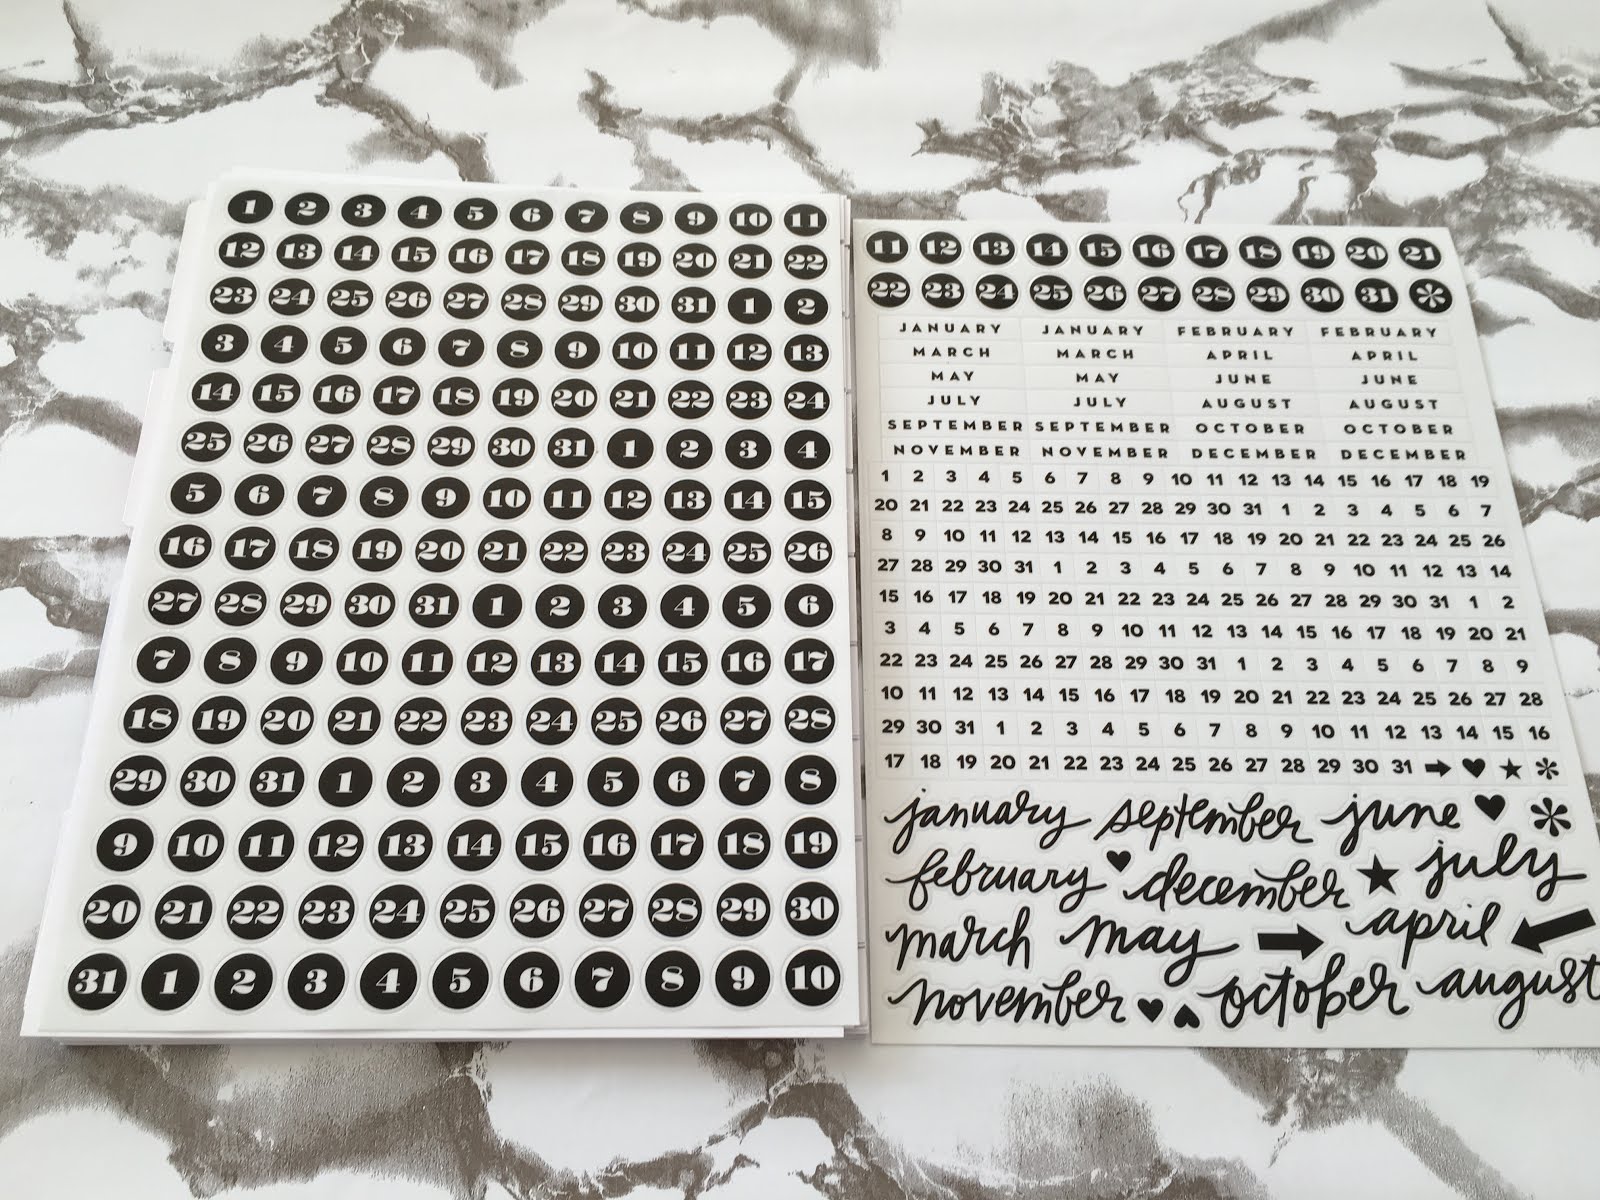 1 2 3 4 5 6 7 8 9 10 11
12 13 14 15 16 17 18 19 20 21 22
23 24 25 26 27 28 29 30 31 1 2
3 4 5 6 7 8 9 10 11 12 13
14 15 16 17 18 19 20 21 22 23 24
25 26 27 28 29 30 31 1 2 3 4
5 6 7 8 9 10 11 12 13 14 15
16 17 18 19 20 21 22 23 24 25 26
27 28 29 30 31 1 2 3 4 5 6
7 8 9 10 11 12 13 14 15 16 17
18 19 20 21 22 23 24 25 26 27 28
29 30 31 1 2 3 4 5 6 7 8
9 10 11 12 13 14 15 16 17 18 19
20 21 22 23 24 25 26 27 28 29 30
31 1 2 3 4 5 6 7 8 9 10
11 12 13 14 15 16 17 18 19 20 21
22 23 24 25 26 27 28 29 30 31 *
JANUARY JANUARY FEBRUARY FEBRUARY
MARCH MARCH APRIL APRIL
MAY MAY JUNE JUNE
JULY JULY AUGUST AUGUST
SEPTEMBER SEPTEMBER OCTOBER OCTOBER
NOVEMBER NOVEMBER DECEMBER DECEMBER
1 2 3 4 5 6 7 8 9 10 11 12 13 14 15 16 17 18 19
20 21 22 23 24 25 26 27 28 29 30 31 1 2 3 4 5 6 7
8 9 10 11 12 13 14 15 16 17 18 19 20 21 22 23 24 25 26
27 28 29 30 31 1 2 3 4 5 6 7 8 9 10 11 12 13 14
15 16 17 18 19 20 21 22 23 24 25 26 27 28 29 30 31 1 2
3 4 5 6 7 8 9 10 11 12 13 14 15 16 17 18 19 20 21
22 23 24 25 26 27 28 29 30 31 1 2 3 4 5 6 7 8 9
10 11 12 13 14 15 16 17 18 19 20 21 22 23 24 25 26 27 28
29 30 31 1 2 3 4 5 6 7 8 9 10 11 12 13 14 15 16
17 18 19 20 21 22 23 24 25 26 27 28 29 30 31 ➡ ♥ ★ *
january september june ♥ *
february ♥ december ★ july
march may ➡ april ⬅
november ♥ ♥ october august